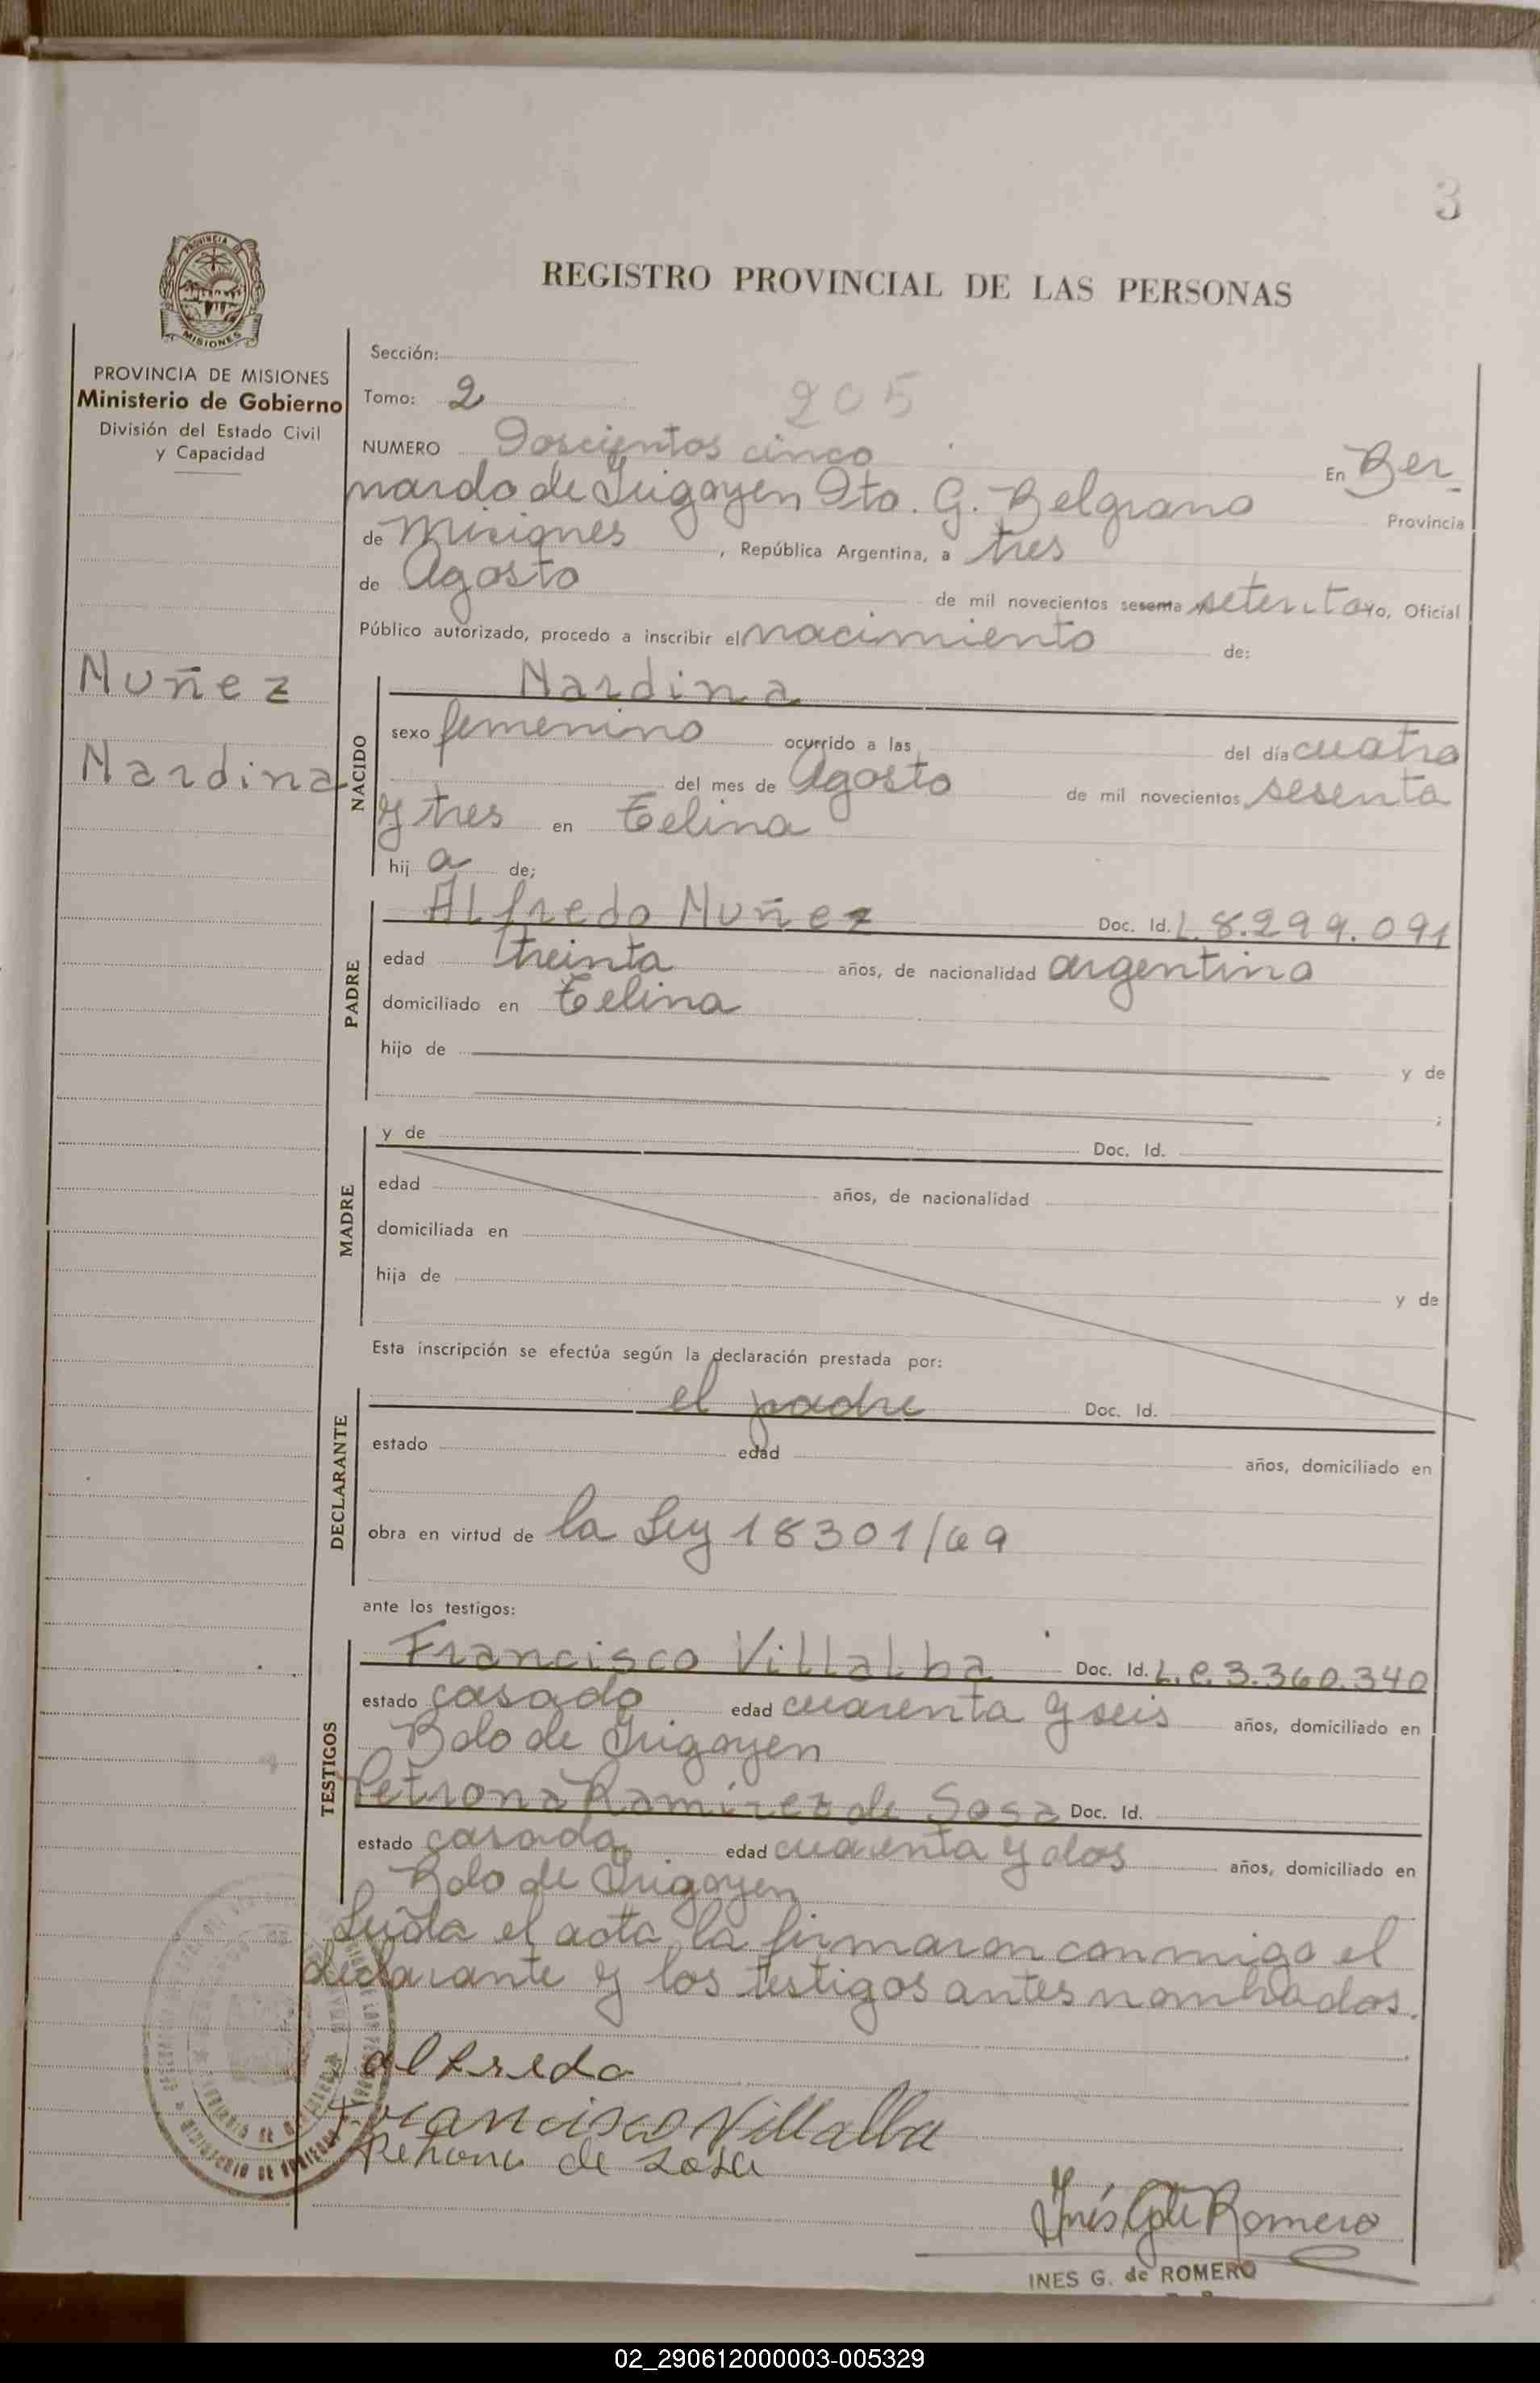 3
REGISTRO PROVINCIAL DE LAS PERSONAS
PROVINCIA DE
MISIONES
PROVINCIA DE MISIONES
Ministerio de Gobierno
División del Estado Civil
y Capacidad
Nuñez
Nardina
Sección:
Tomo: 2 205
NUMERO Doscientos cinco En Ber
nardo de Irigoyen Dto. G. Belgrano Provincia
de Misiones, República Argentina, a tres
de Agosto de mil novecientos sesenta setenta yo, Oficial
Público autorizado, procedo a inscribir el nacimiento de:
NACIDO
Nardina
sexo femenino ocurrido a las del día cuatro
del mes de Agosto de mil novecientos sesenta
y tres en Celina
hija de;
PADRE
Alfredo Nuñez Doc. Id. L. 8.299.091
edad treinta años, de nacionalidad argentina
domiciliado en Celina
hijo de y de
;
MADRE
y de Doc. Id.
edad años, de nacionalidad
domiciliada en
hija de y de
Esta inscripción se efectúa según la declaración prestada por:
DECLARANTE
el padre Doc. Id.
estado edad años, domiciliado en
obra en virtud de la Ley 18301/69
ante los testigos:
TESTIGOS
Francisco Villalba Doc. Id. L.e.3.360.340
estado casado edad cuarenta y seis años, domiciliado en
Bdo de Irigoyen
Petrona Ramirez de Sosa Doc. Id.
estado casada edad cuarenta y dos años, domiciliado en
Bdo de Irigoyen
Leida el acta la firmaron conmigo el
declarante y los testigos antes nombrados.
alfredo
Francisco Villalba
Petrona de Sosa
Inés Romero
INES G. de ROMERO
02_290612000003-005329